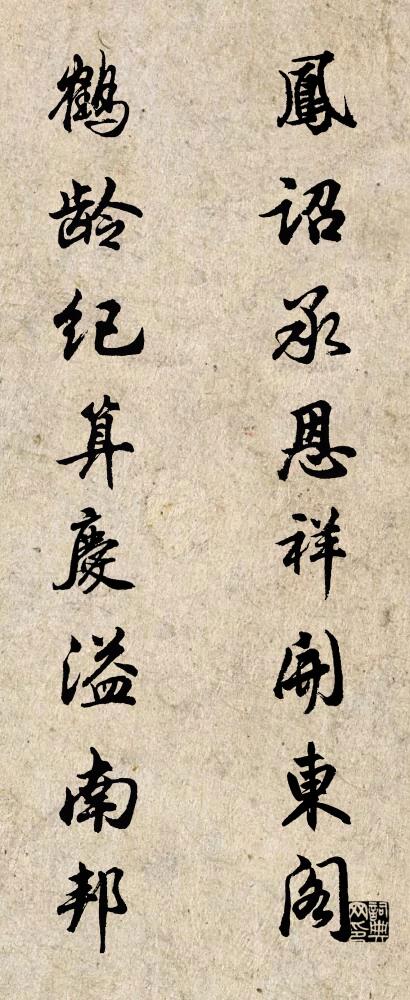 鳳詔承恩祥開東閣
鶴齡紀算慶溢南邦
詞典網印